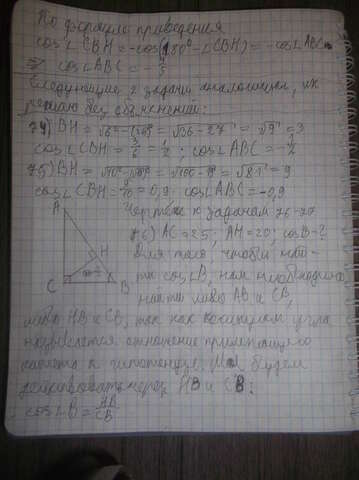 По формуле приведения
cos∠CBH = -cos(180° - ∠CBH) = -cos∠ABC
=> cos∠ABC = -
Следующие 2 задачи аналогичны, их
решаю без объяснений:
74) BH = = √36-27 = √9 = 3
cos∠CBH = 3/6 = 1/2; cos∠ABC = -1/2
75) BH = = = √81 = 9
cos∠CBH = 9/10 = 0,9 cos∠ABC = -0,9
A
Чертёж к задачам 76-77
76) AC = 25; AH = 20; cosB - ?
H
Для того, чтобы най-
ти cos∠B, нам необходимо
C B
найти либо AB и CB,
либо HB и CB, так как косинусом угла
называется отношение прилежащего
катета к гипотенузе. Мы будем
действовать через HB и CB:
cos∠B = HB/CB